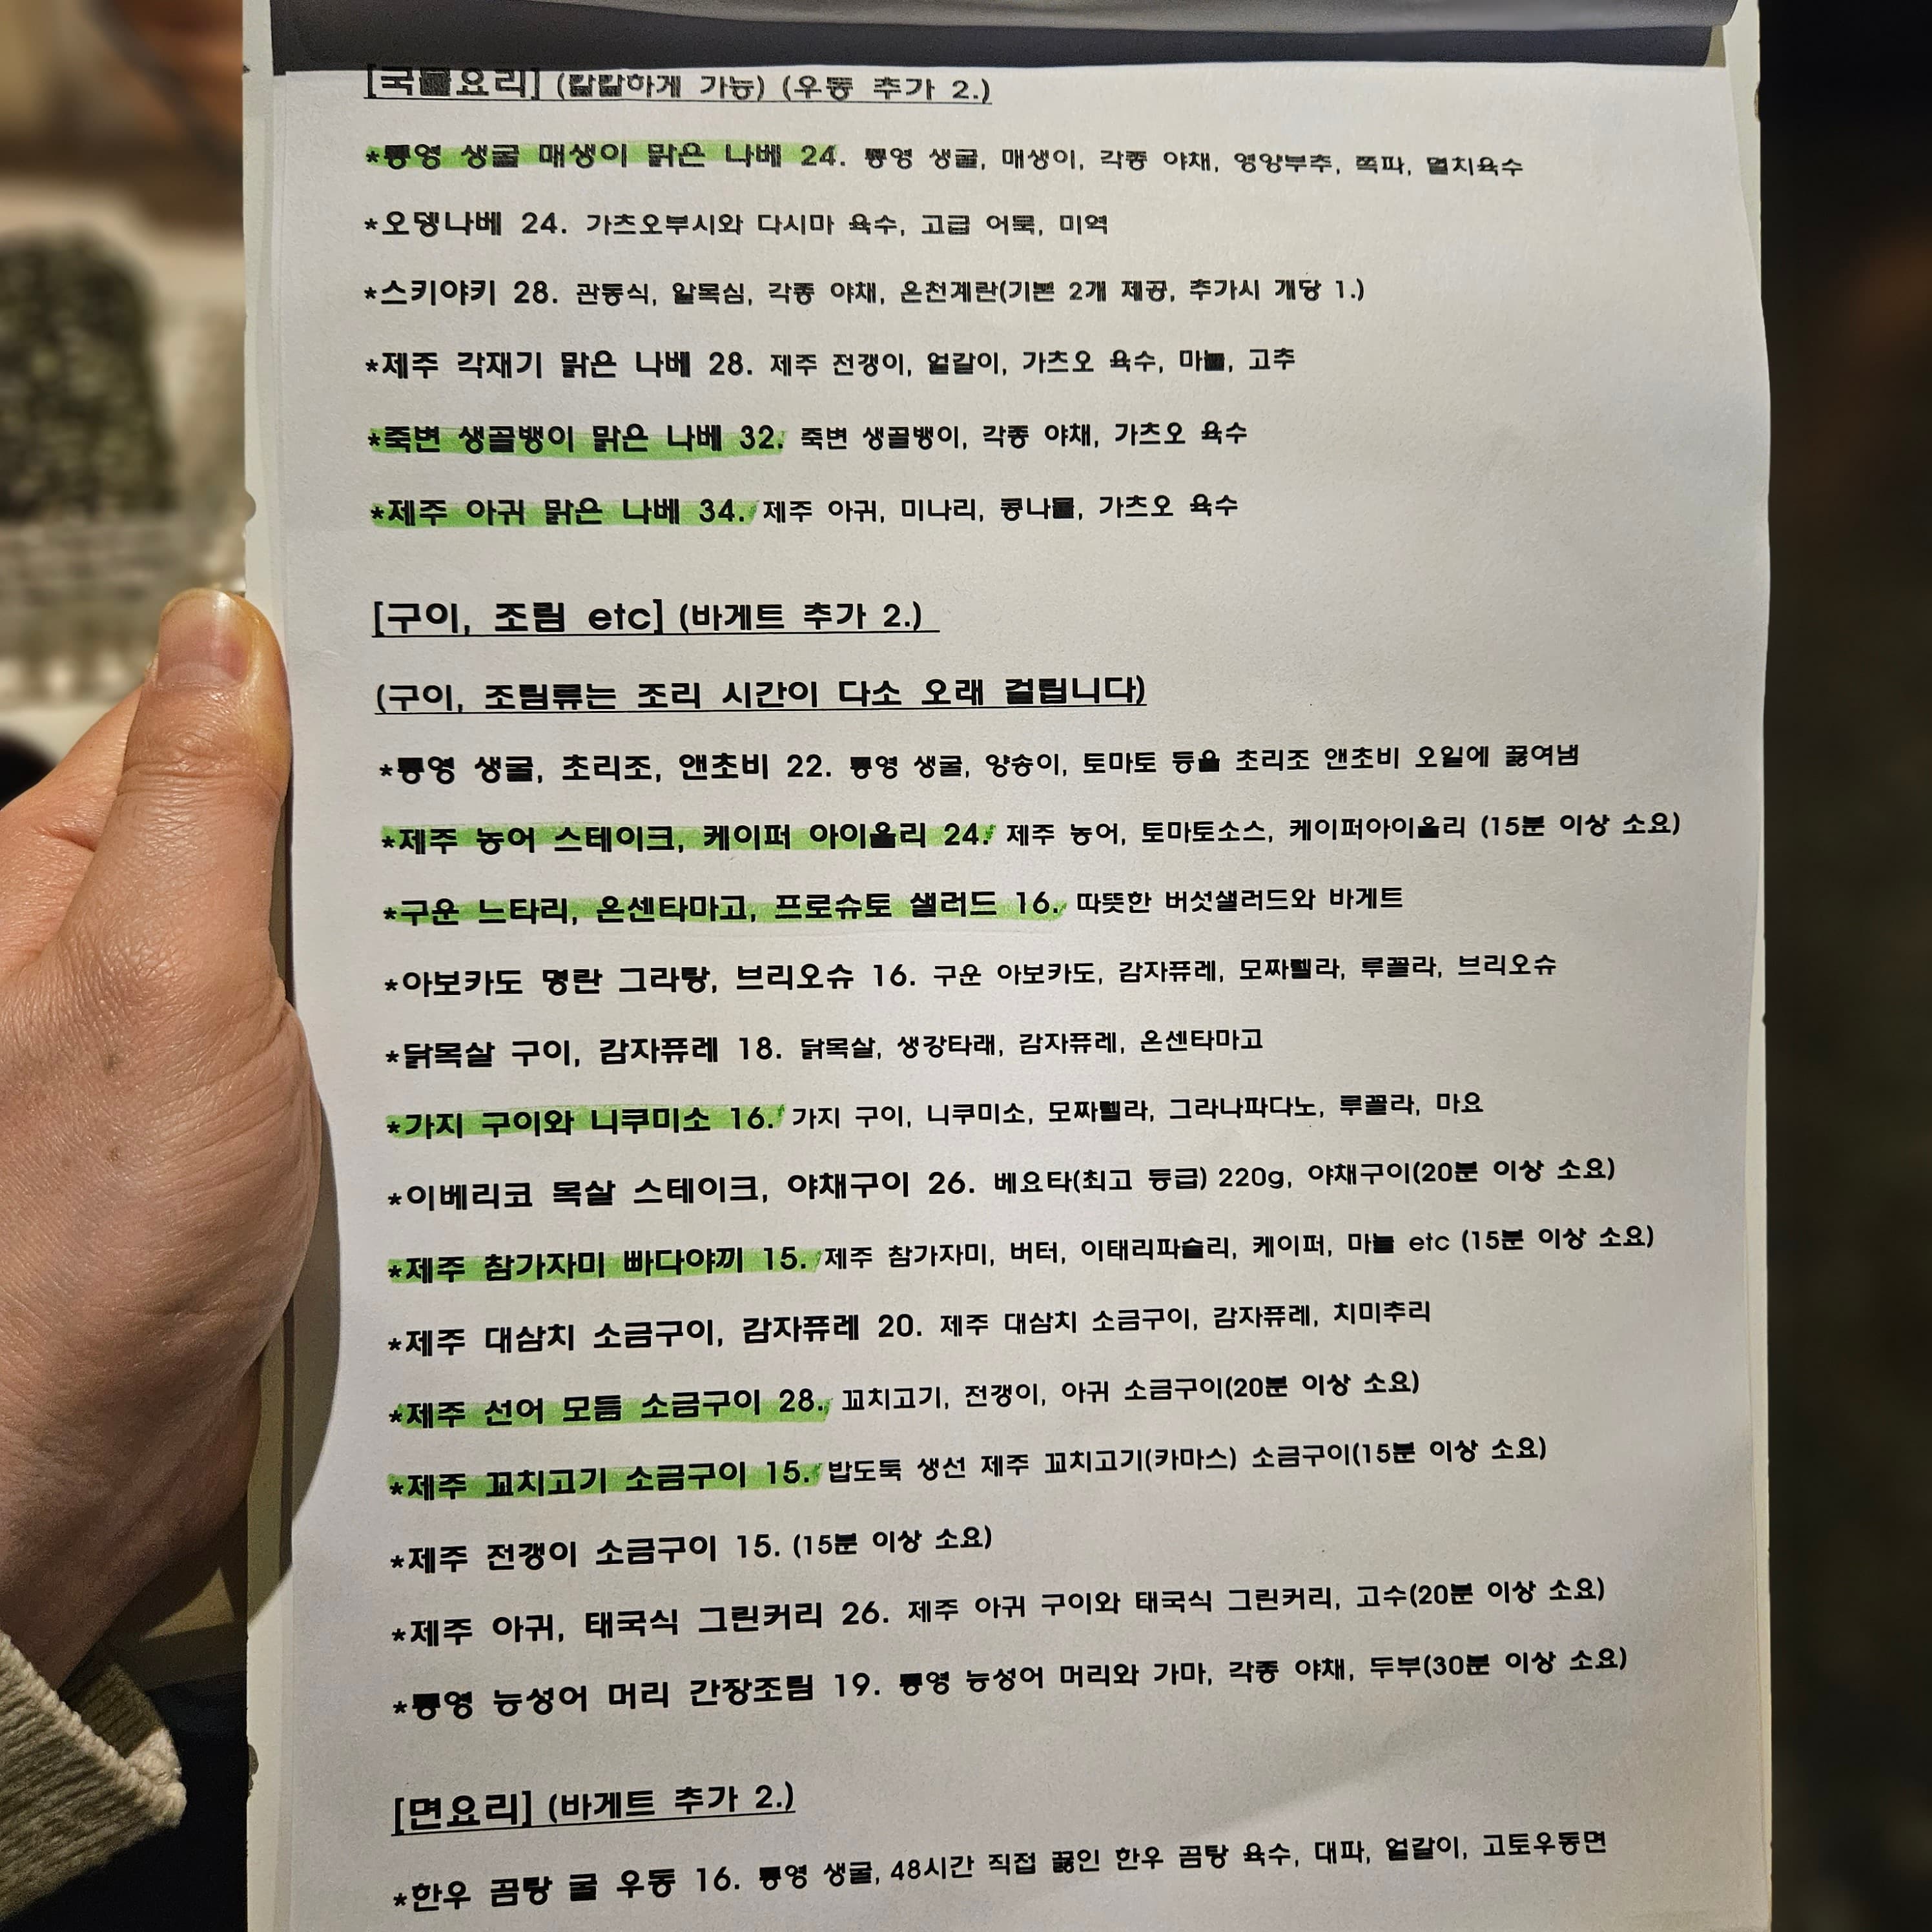 [국물요리] (칼칼하게 가능) (우동 추가 2.)
*통영 생굴 매생이 맑은 나베 24. 통영 생굴, 매생이, 각종 야채, 영양부추, 쪽파, 멸치육수
*오뎅나베 24. 가츠오부시와 다시마 육수, 고급 어묵, 미역
*스키야키 28. 관동식, 알목심, 각종 야채, 온천계란(기본 2개 제공, 추가시 개당 1.)
*제주 각재기 맑은 나베 28. 제주 전갱이, 얼갈이, 가츠오 육수, 마늘, 고추
*죽변 생골뱅이 맑은 나베 32. 죽변 생골뱅이, 각종 야채, 가츠오 육수
*제주 아귀 맑은 나베 34. 제주 아귀, 미나리, 콩나물, 가츠오 육수
[구이, 조림 etc] (바게트 추가 2.)
(구이, 조림류는 조리 시간이 다소 오래 걸립니다)
*통영 생굴, 초리조, 앤초비 22. 통영 생굴, 양송이, 토마토 등을 초리조 앤초비 오일에 끓여냄
*제주 농어 스테이크, 케이퍼 아이올리 24. 제주 농어, 토마토소스, 케이퍼아이올리 (15분 이상 소요)
*구운 느타리, 온센타마고, 프로슈토 샐러드 16. 따뜻한 버섯샐러드와 바게트
*아보카도 명란 그라탕, 브리오슈 16. 구운 아보카도, 감자퓨레, 모짜렐라, 루꼴라, 브리오슈
*닭목살 구이, 감자퓨레 18. 닭목살, 생강타래, 감자퓨레, 온센타마고
*가지 구이와 니쿠미소 16. 가지 구이, 니쿠미소, 모짜렐라, 그라나파다노, 루꼴라, 마요
*이베리코 목살 스테이크, 야채구이 26. 베요타(최고 등급) 220g, 야채구이(20분 이상 소요)
*제주 참가자미 빠다야끼 15. 제주 참가자미, 버터, 이태리파슬리, 케이퍼, 마늘 etc (15분 이상 소요)
*제주 대삼치 소금구이, 감자퓨레 20. 제주 대삼치 소금구이, 감자퓨레, 치미추리
*제주 선어 모듬 소금구이 28. 꼬치고기, 전갱이, 아귀 소금구이(20분 이상 소요)
*제주 꼬치고기 소금구이 15. 밥도둑 생선 제주 꼬치고기(카마스) 소금구이(15분 이상 소요)
*제주 전갱이 소금구이 15. (15분 이상 소요)
*제주 아귀, 태국식 그린커리 26. 제주 아귀 구이와 태국식 그린커리, 고수(20분 이상 소요)
*통영 능성어 머리 간장조림 19. 통영 능성어 머리와 가마, 각종 야채, 두부(30분 이상 소요)
[면요리] (바게트 추가 2.)
*한우 곰탕 굴 우동 16. 통영 생굴, 48시간 직접 끓인 한우 곰탕 육수, 대파, 얼갈이, 고토우동면